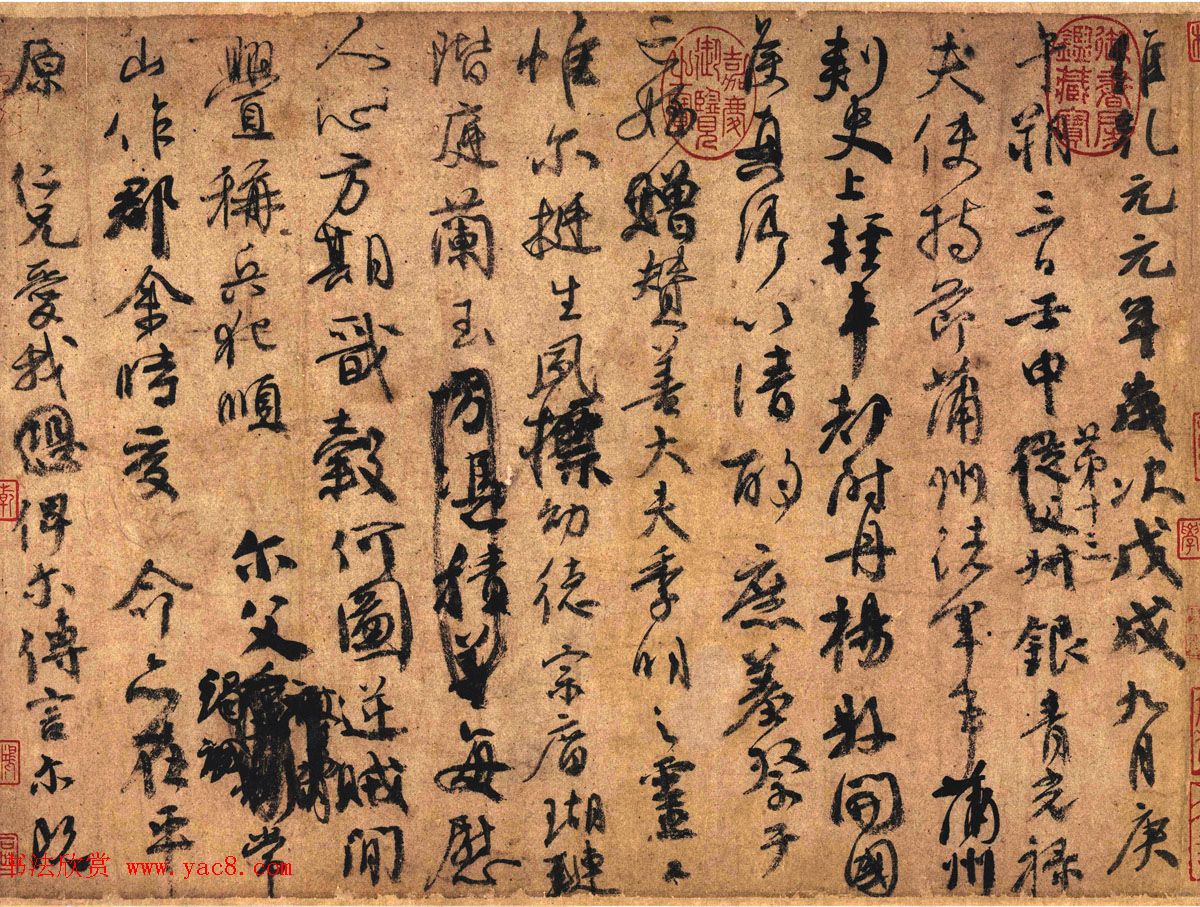 維乾元元年歲次戊戌九月庚
午朔三日壬申從父叔銀青光祿
第十三
夫使持節蒲州諸軍事蒲州
刺史上輕車都尉丹楊縣開國
侯真卿以清酌庶羞祭于
亡姪贈贊善大夫季明之靈曰
惟尔挺生夙標幼德宗廟瑚璉
階庭蘭玉方憑積善每慰
人心方期戩穀何圖逆賊閒
舋稱兵犯順尔父竭誠常
山作郡余時受命亦在平
原仁兄愛我恐俾尔傳言尔既
御書房鑑藏寶
嘉慶御覽之寶
书法欣赏 www.yac8.com